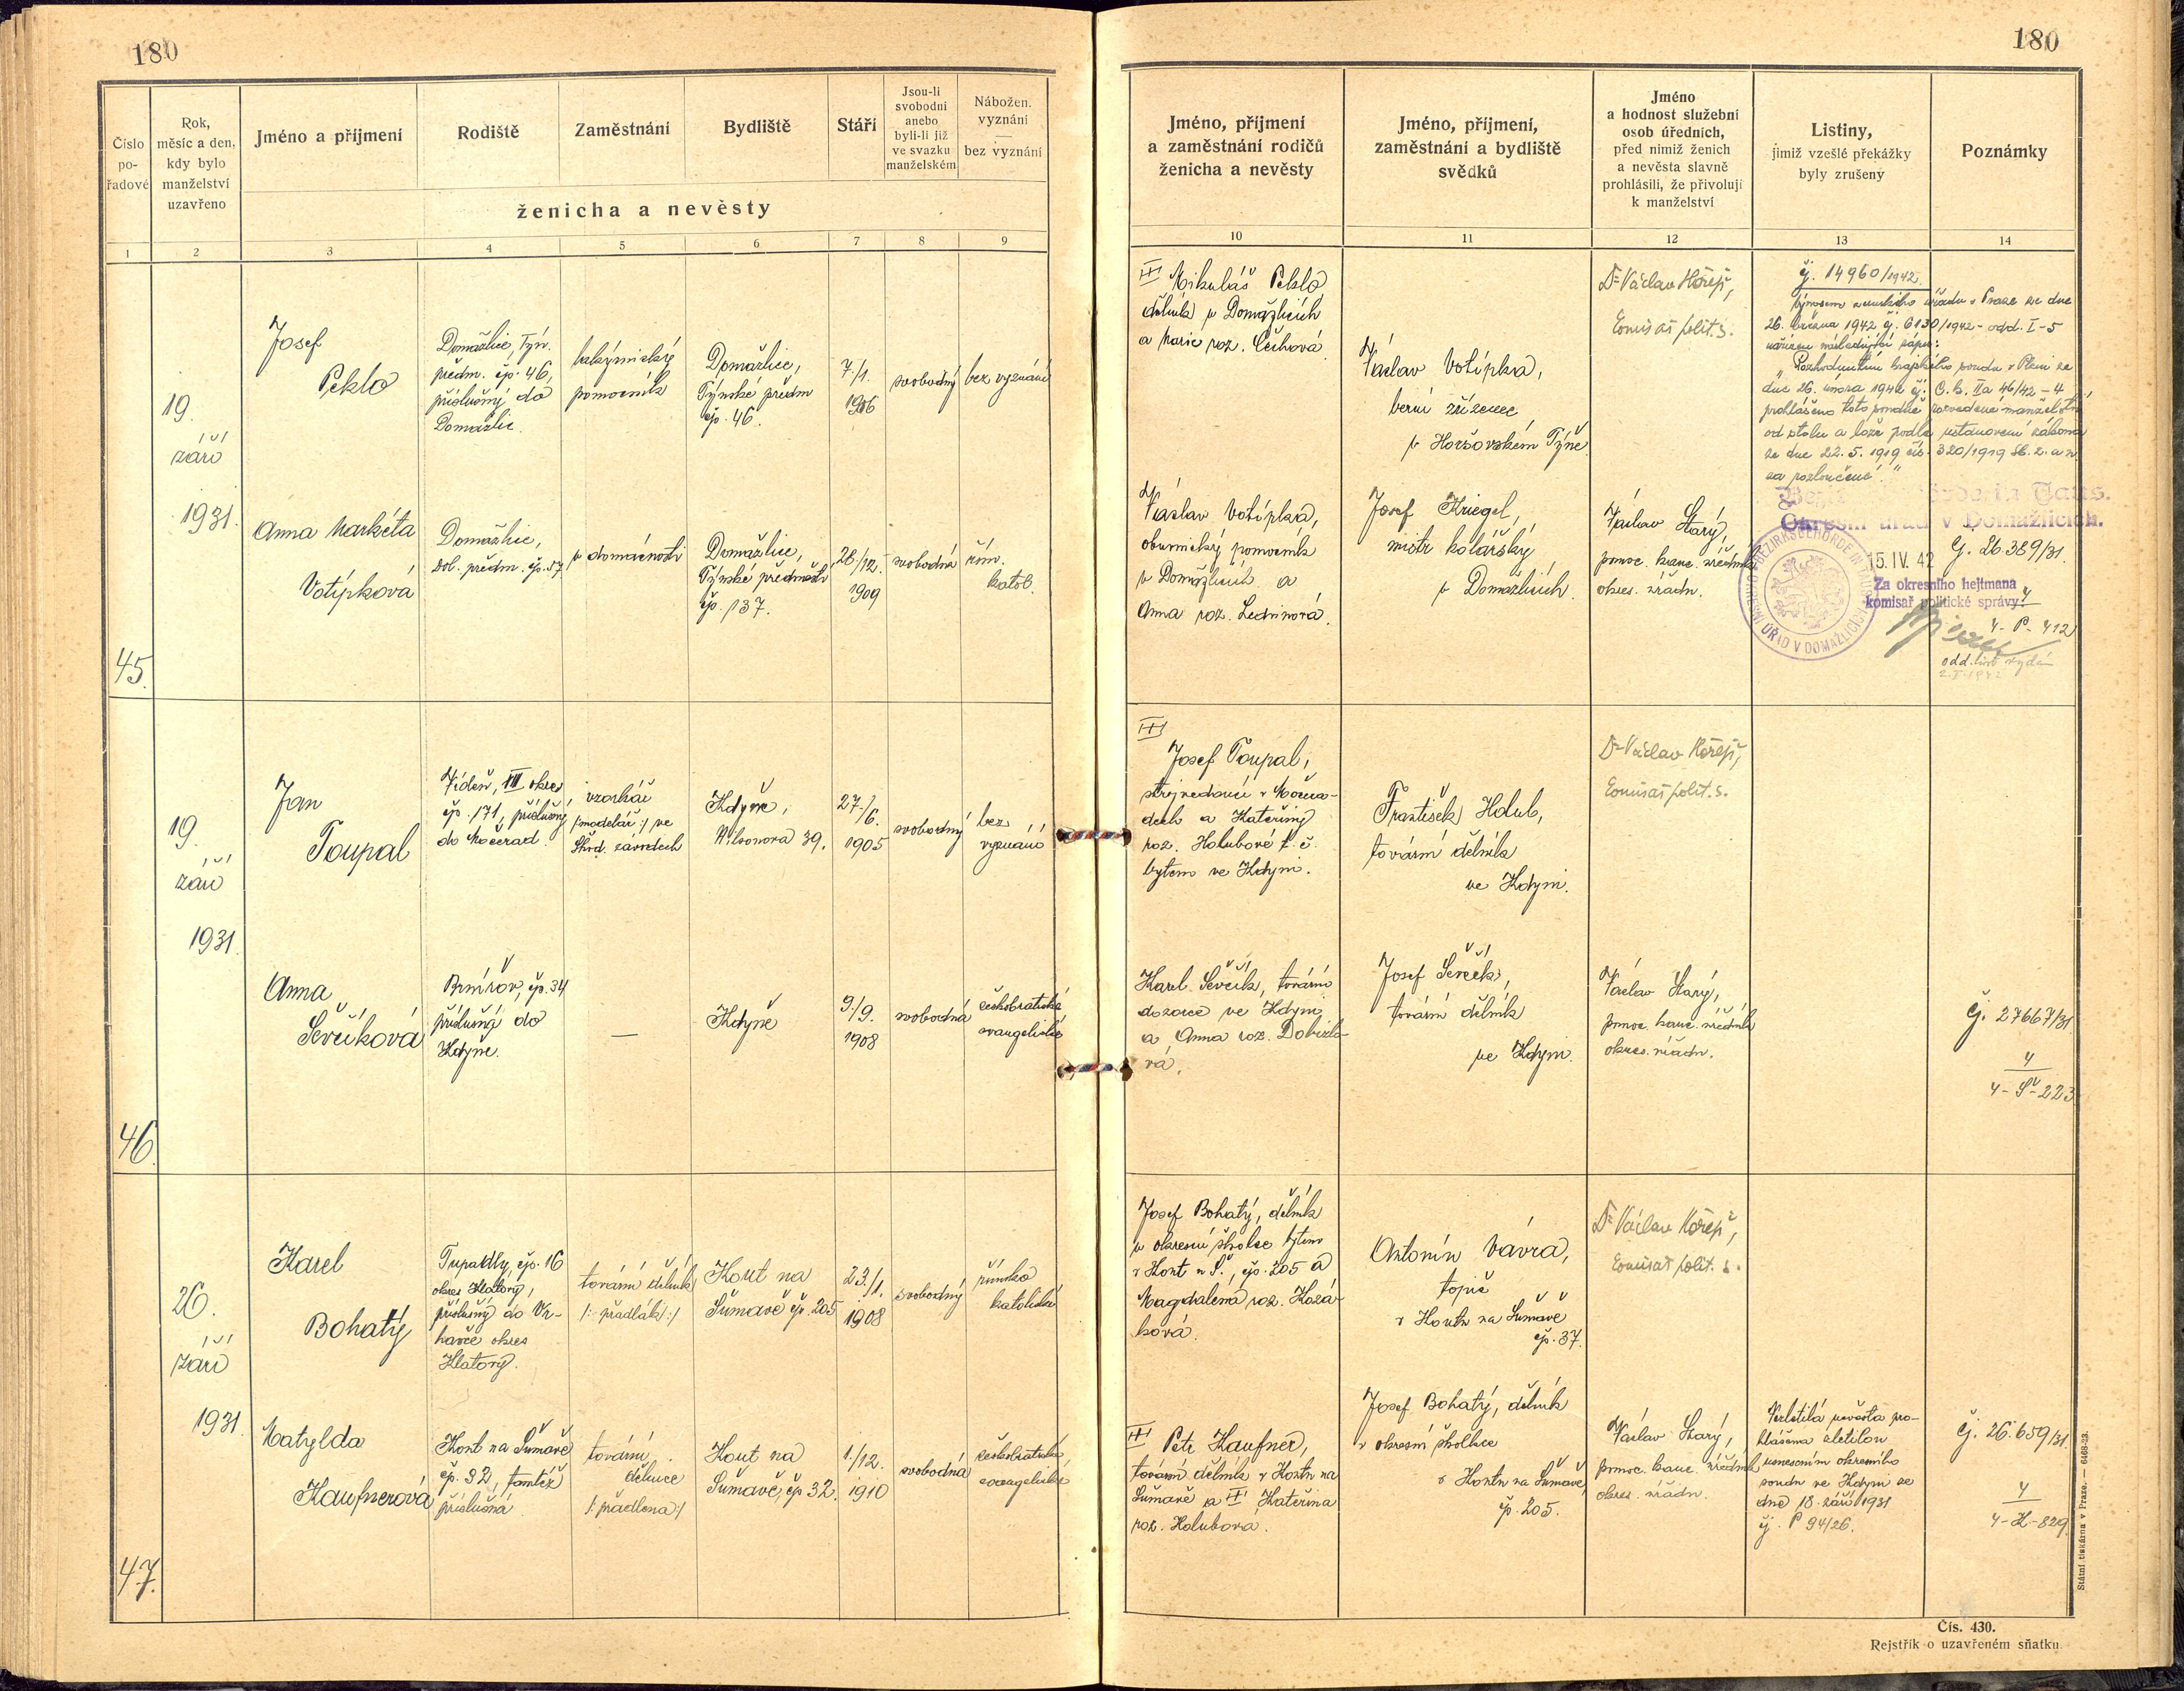 180
180
Číslo
po-
řadové
Rok,
měsíc a den,
kdy bylo
manželství
uzavřeno
Jméno a příjmení
Rodiště
Zaměstnání
Bydliště
Stáří
Jsou-li
svobodni
anebo
byli-li již
ve svazku
manželském
Nábožen.
vyznání
—
bez vyznání
ženicha a nevěsty
Jméno, příjmení
a zaměstnání rodičů
ženicha a nevěsty
Jméno, příjmení,
zaměstnání a bydliště
svědků
Jméno
a hodnost služební
osob úředních,
před nimiž ženich
a nevěsta slavně
prohlásili, že přivolují
k manželství
Listiny,
jimiž vzešlé překážky
byly zrušeny
Poznámky
1 2 3 4 5 6 7 8 9
10 11 12 13 14
45.
19.
září
1931.
Josef
Peklo
Domažlice, Týn.
předm. čp. 46,
příslušný do
Domažlic.
pomocník
Domažlice,
Týnské předm
čp. 46.
7./1.
1906
svobodný
bez vyznání
Anna Markéta
Votípková
Domažlice,
Dol. předm. čp. 57
v domácnosti
Domažlice,
Týnské předměstí
čp. 137.
28/12.
1909
svobodná
řím.
katol.
Mikuláš Peklo
dělník v Domažlicích
a Marie roz. Čechová.
Václav Votípka,
berní zřízenec
v Horšovském Týně.
Dr Václav Hořejš,
komisař polit. s.
Václav Votípka,
obuvnický pomocník
v Domažlicích a
Anna roz. Ledvinová.
Josef Kriegel,
mistr kolářský
v Domažlicích.
Václav Starý,
pomoc. kanc. úředník
okres. úřadu.
čj. 14960/1942.
Výnosem zemského úřadu v Praze ze dne
26. března 1942 čj. 6130/1942 - odd. I-5
nařízen následující zápis:
"Rozhodnutím krajského soudu v Plzni ze
dne 26. února 1942 čj. C.k. IIa 46/42-4
prohlášeno toto soudně rozvedené manželství
od stolu a lože podle ustanovení zákona
ze dne 22. 5. 1919 čís. 320/1919 Sb. z. a n.
za rozloučené."
Okresní úřad v Domažlicích.
15. IV. 42
Za okresního hejtmana
komisař politické správy:
ÚŘAD V DOMAŽLICÍCH
čj. 26.389/31.
4
4 - P - 412
odd. list vydán
46.
19.
září
1931.
Jan
Toupal
Vídeň, VII okres
čp. 171, příslušný
do Močerad.
vzorkář
/:modelář:/ ve
Škod. závodech
Kdyně,
Wilsonova 39.
27./6.
1905
svobodný
bez
vyznání
Anna
Ševčíková
Brnířov, čp. 34
příslušná do
Kdyně.
—
Kdyně
9./9.
1908
svobodná
českobratrské
evangelické
Josef Toupal,
strojvedoucí v Močera-
dech a Kateřiny
roz. Holubové t. č.
bytem ve Kdyni.
František Holub,
tovární dělník
ve Kdyni.
Dr Václav Hořejš,
komisař polit. s.
Karel Ševčík, tovární
dozorce ve Kdyni
a Anna roz.
Josef Ševčík,
tovární dělník
ve Kdyni.
Václav Starý,
pomoc. kanc. úředník
okres. úřadu.
čj. 27667/31
4
4 - Š - 223
47.
26.
září
1931
Karel
Bohatý
Tupadly, čp. 16
okres Klatovy,
příslušný do Vr-
havče okres
Klatovy.
tovární dělník
/:přadlák:/
Kout na
Šumavě čp. 205
23./1.
1908
svobodný
římsko
katolické
Matylda
Kaufnerová
Kout na Šumavě
čp. 32, tamtéž
příslušná
tovární
dělnice
/:přadlena:/
Kout na
Šumavě, čp 32.
1./12.
1910
svobodná
českobratrské
evangelické
Josef Bohatý, dělník
v okresní školce bytem
v Kout n Š., čp. 205 a
Magdalena roz. Kozá-
ková.
Antonín Vávra,
topič
v Koutu na Šumavě
čp. 37.
Dr Václav Hořejš,
komisař polit. s.
Petr Kaufner,
tovární dělník v Koutu na
Šumavě a Kateřina
roz. Holubova.
Josef Bohatý, dělník
v okresní školce
v Koutu na Šumavě,
čp. 205.
Václav Starý,
pomoc. kanc. úředník
okres. úřadu.
Nezletilá nevěsta pro-
hlášena zletilou
usnesením okresního
soudu ve Kdyni ze
dne 18. září 1931
čj. P 94/26.
čj. 26.659/31.
4
4 - K - 829
Státní tiskárna v Praze. — 6468-23.
Čís. 430.
Rejstřík o uzavřeném sňatku.